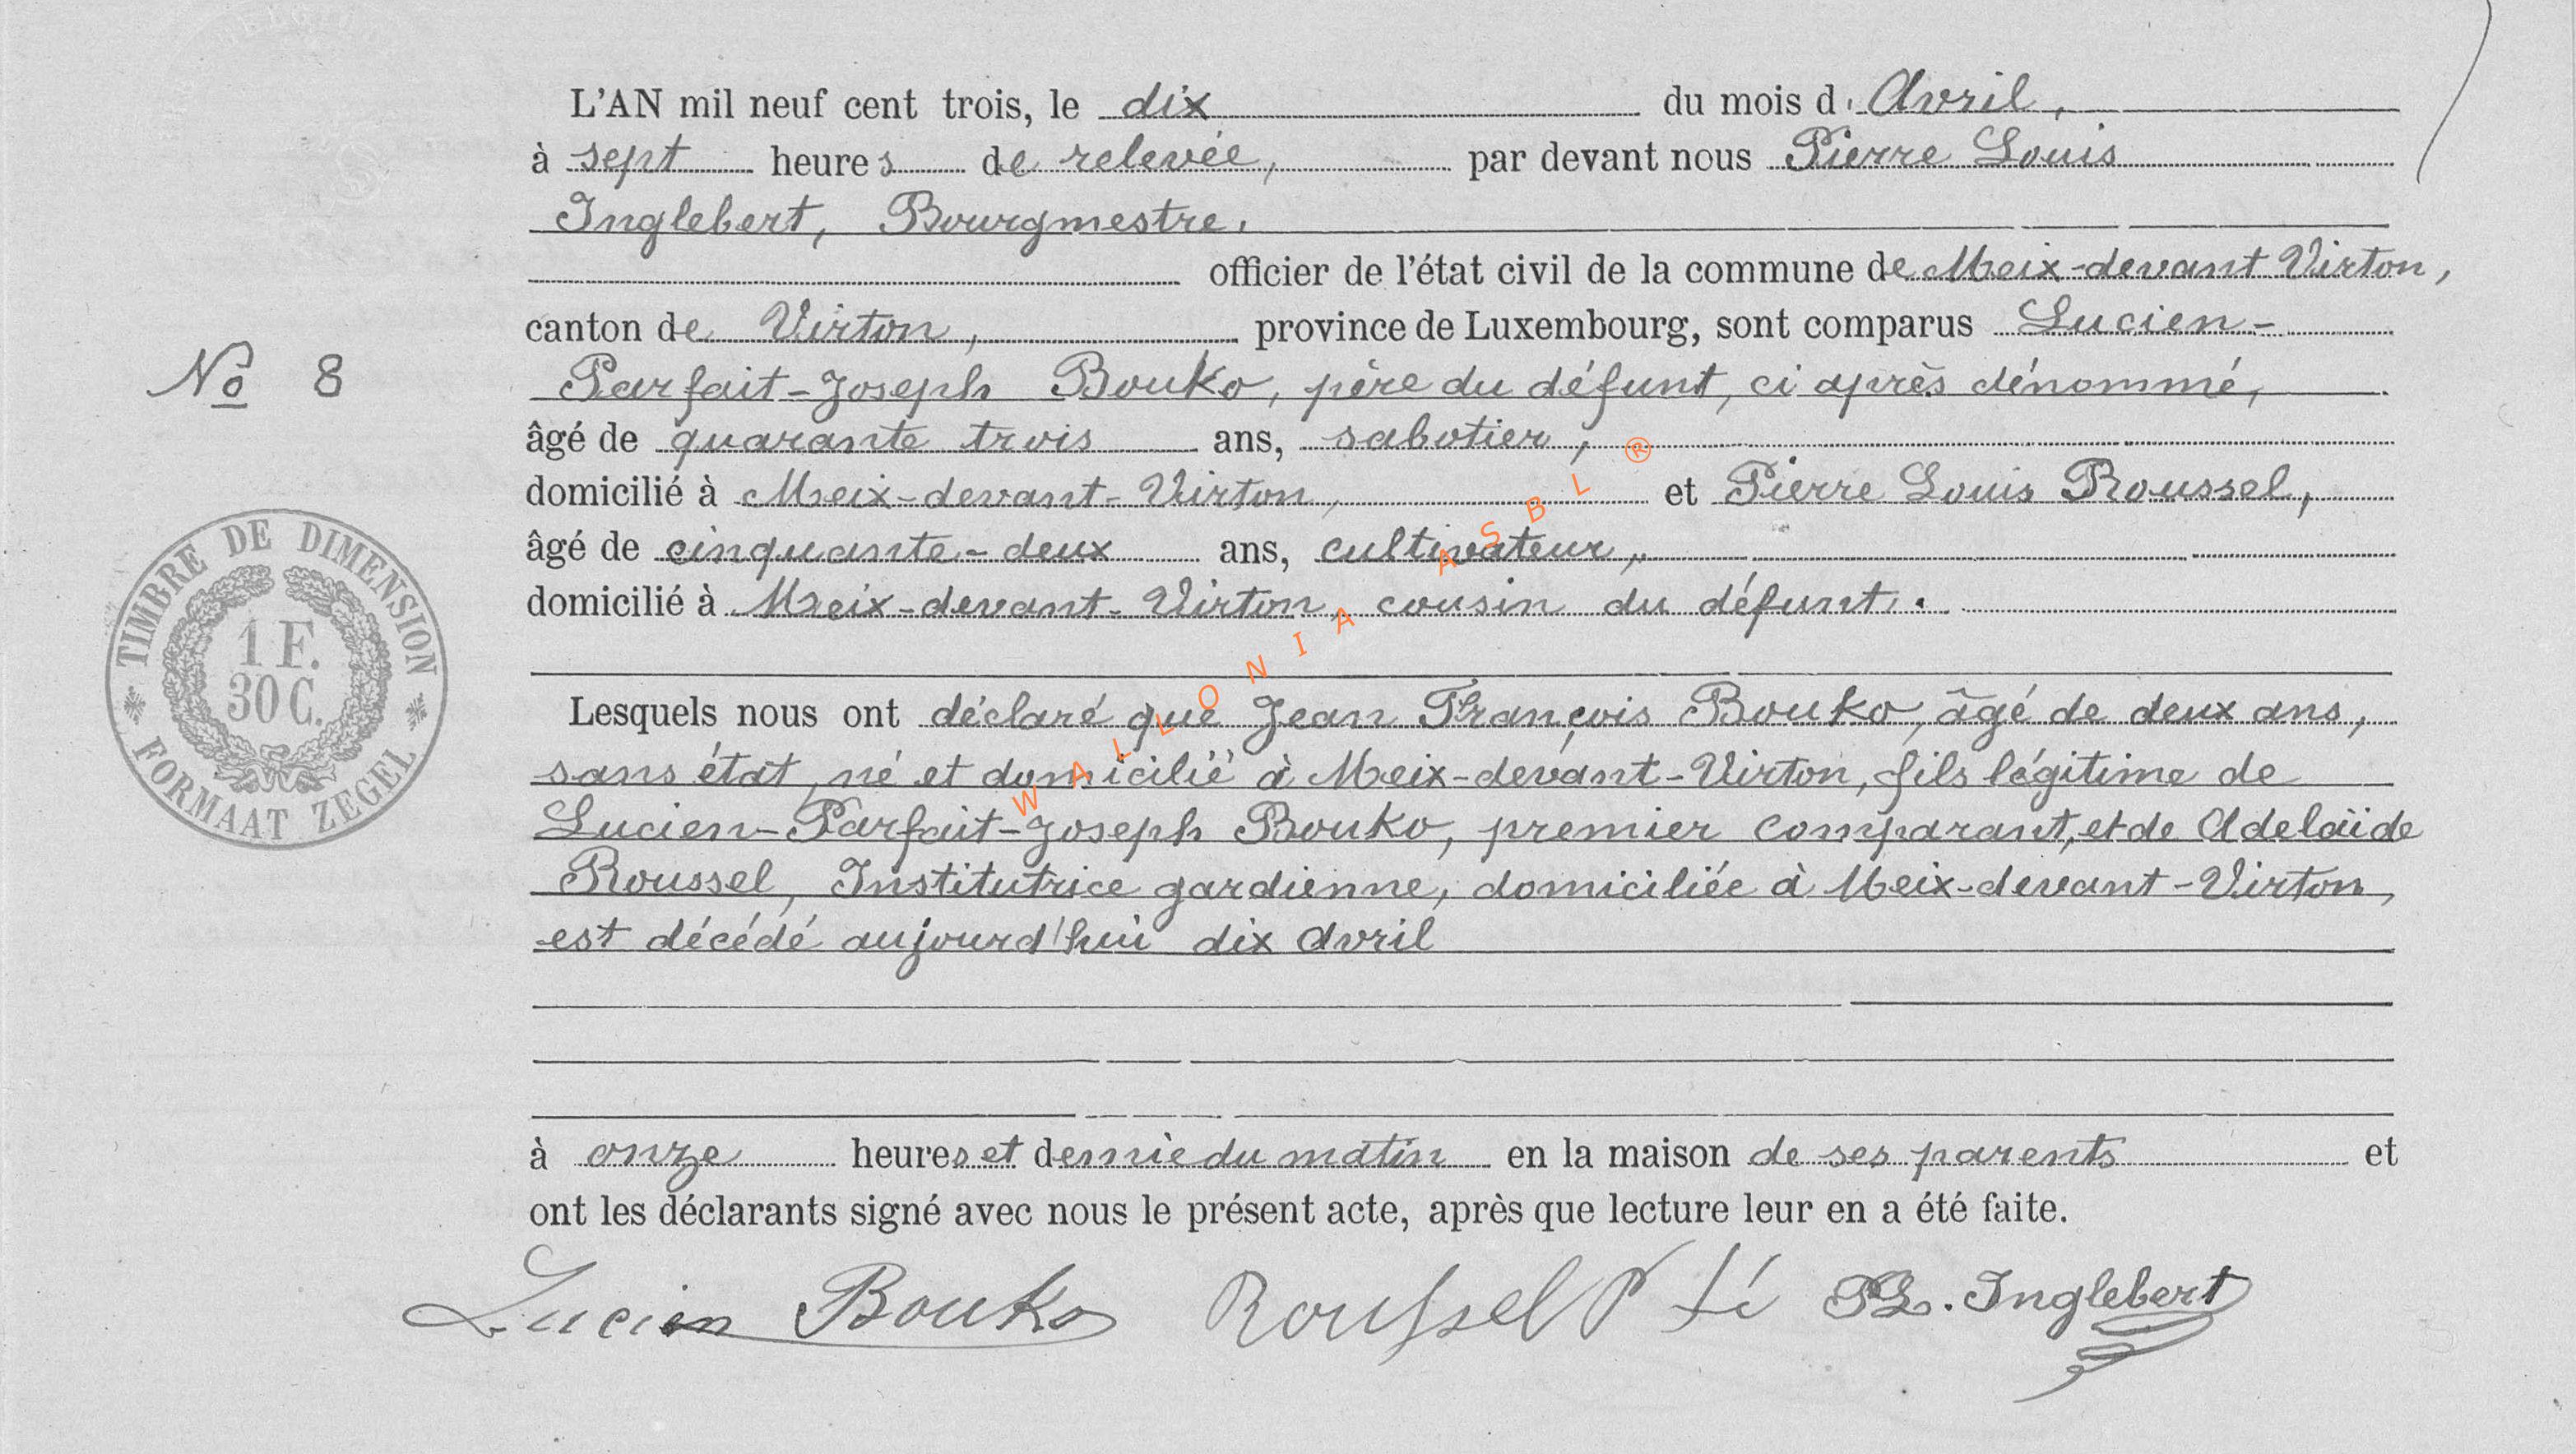 L'AN mil neuf cent trois, le dix du mois d'Avril,
à sept heures de relevée, par devant nous Pierre Louis
Inglebert, Bourgmestre.
officier de l'état civil de la commune de Meix-devant Virton,
canton de Virton, province de Luxembourg, sont comparus Lucien-
Parfait-Joseph Bouko, père du défunt, ci après dénommé,
No 8
âgé de quarante trois ans, sabotier,
domicilié à Meix-devant-Virton, et Pierre Louis Roussel,
âgé de cinquante-deux ans, cultivateur,
domicilié à Meix-devant-Virton, cousin du défunt.
TIMBRE DE DIMENSION
1 F.
30 C.
FORMAAT ZEGEL
WALLONIA ASBL ®
Lesquels nous ont déclaré que Jean François Bouko, âgé de deux ans,
sans état, né et domicilié à Meix-devant-Virton, fils légitime de
Lucien-Parfait-Joseph Bouko, premier comparant, et de Adelaïde
Roussel, Institutrice gardienne, domiciliée à Meix-devant-Virton,
est décédé aujourd'hui dix avril
à onze heures et demie du matin en la maison de ses parents et
ont les déclarants signé avec nous le présent acte, après que lecture leur en a été faite.
Lucien Bouko Roussel P PL. Inglebert